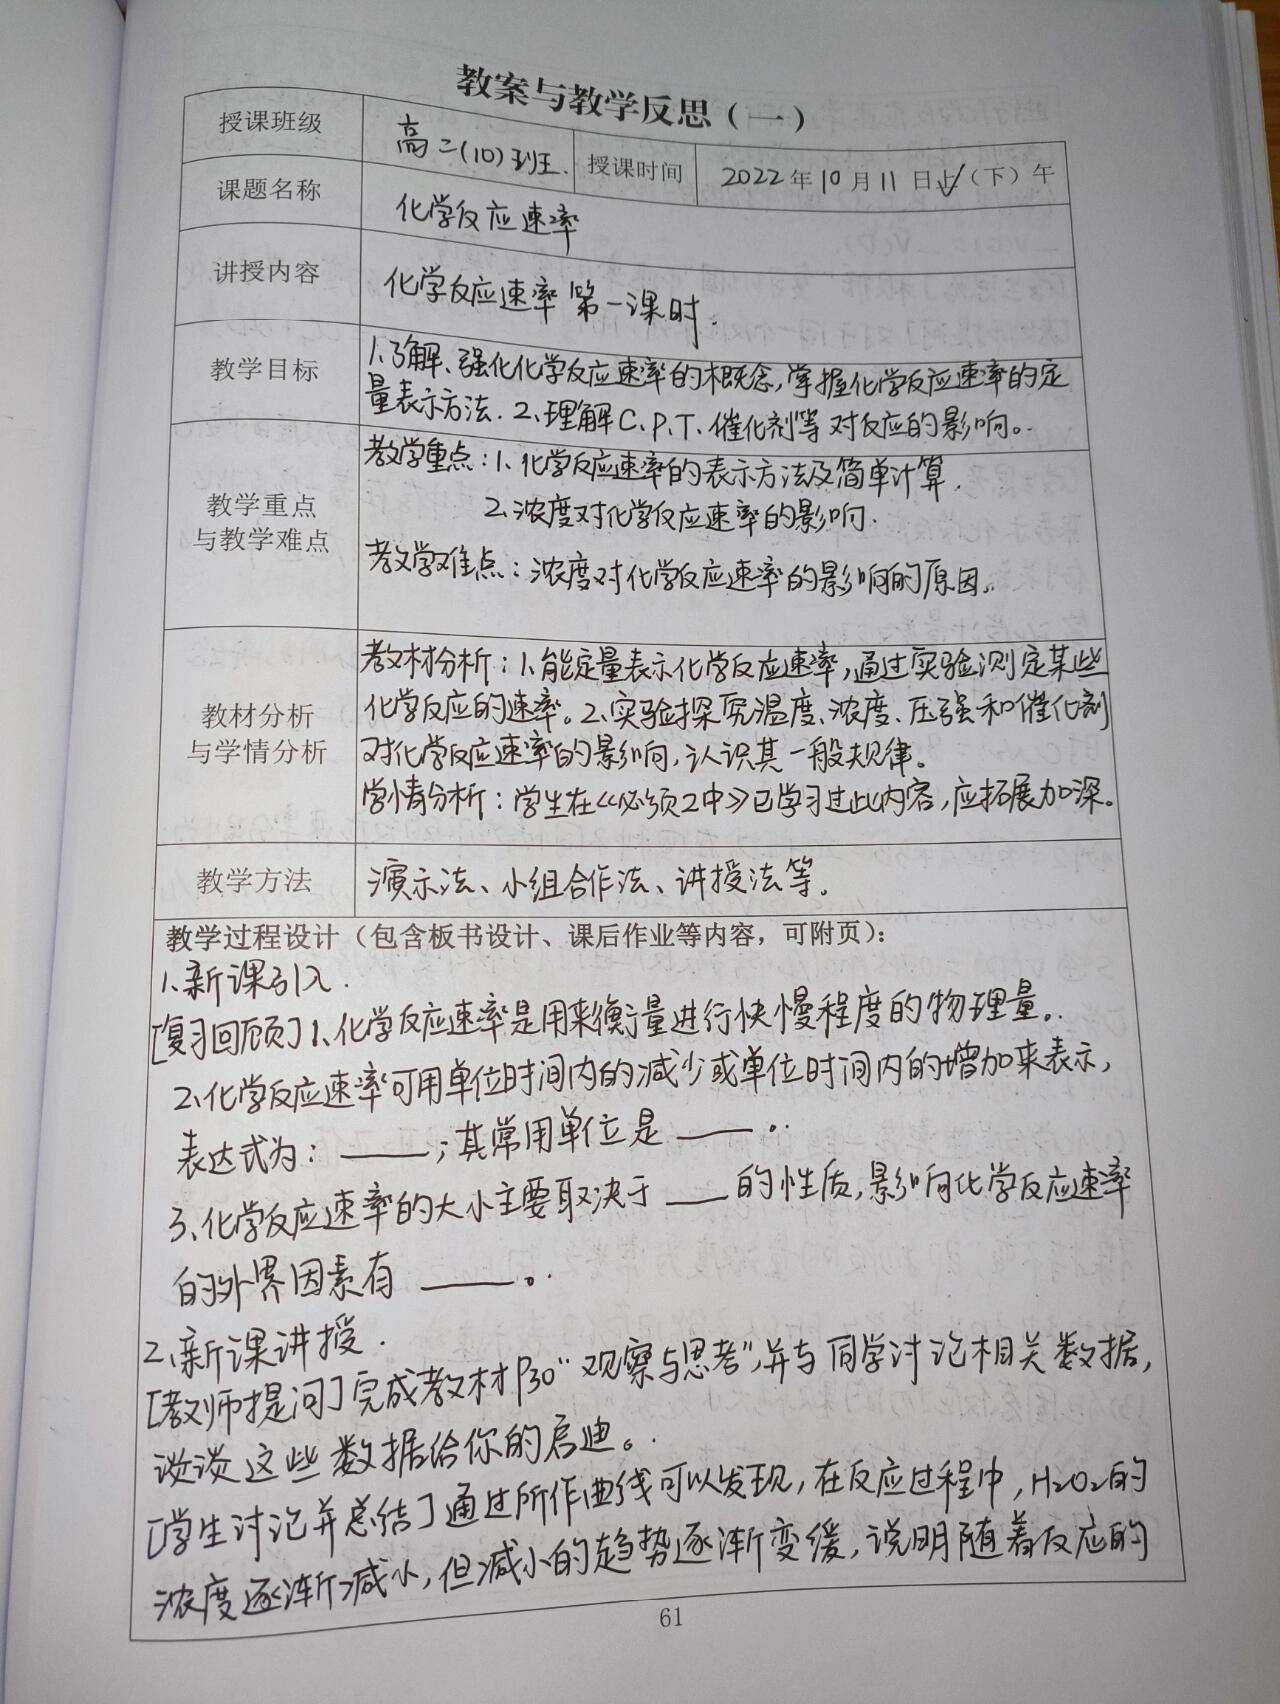 教案与教学反思（一）
授课班级 高二(10)班. 授课时间 2022年10月11日上（下）午
课题名称 化学反应速率
讲授内容 化学反应速率 第一课时.
教学目标 1.了解、强化化学反应速率的概念,掌握化学反应速率的定
量表示方法. 2.理解C、P、T、催化剂等对反应的影响。
教学重点
与教学难点
教学重点：1、化学反应速率的表示方法及简单计算.
2.浓度对化学反应速率的影响.
教学难点：浓度对化学反应速率的影响的原因。
教材分析
与学情分析
教材分析：1.能定量表示化学反应速率,通过实验测定某些
化学反应的速率。2.实验探究温度、浓度、压强和催化剂
对化学反应速率的影响,认识其一般规律。
学情分析：学生在《必须2中》已学习过此内容,应拓展加深。
教学方法 演示法、小组合作法、讲授法等。
教学过程设计（包含板书设计、课后作业等内容，可附页）：
1.新课引入.
[复习回顾]1、化学反应速率是用来衡量进行快慢程度的物理量。
2、化学反应速率可用单位时间内的减少或单位时间内的增加来表示,
表达式为：____;其常用单位是____。
3、化学反应速率的大小主要取决于____的性质,影响化学反应速率
的外界因素有____。
2、新课讲授.
[教师提问]完成教材P30"观察与思考",并与同学讨论相关数据,
谈谈这些数据给你的启迪。
[学生讨论并总结]通过所作曲线可以发现,在反应过程中,H2O2的
浓度逐渐减小,但减小的趋势逐渐变缓,说明随着反应的
61